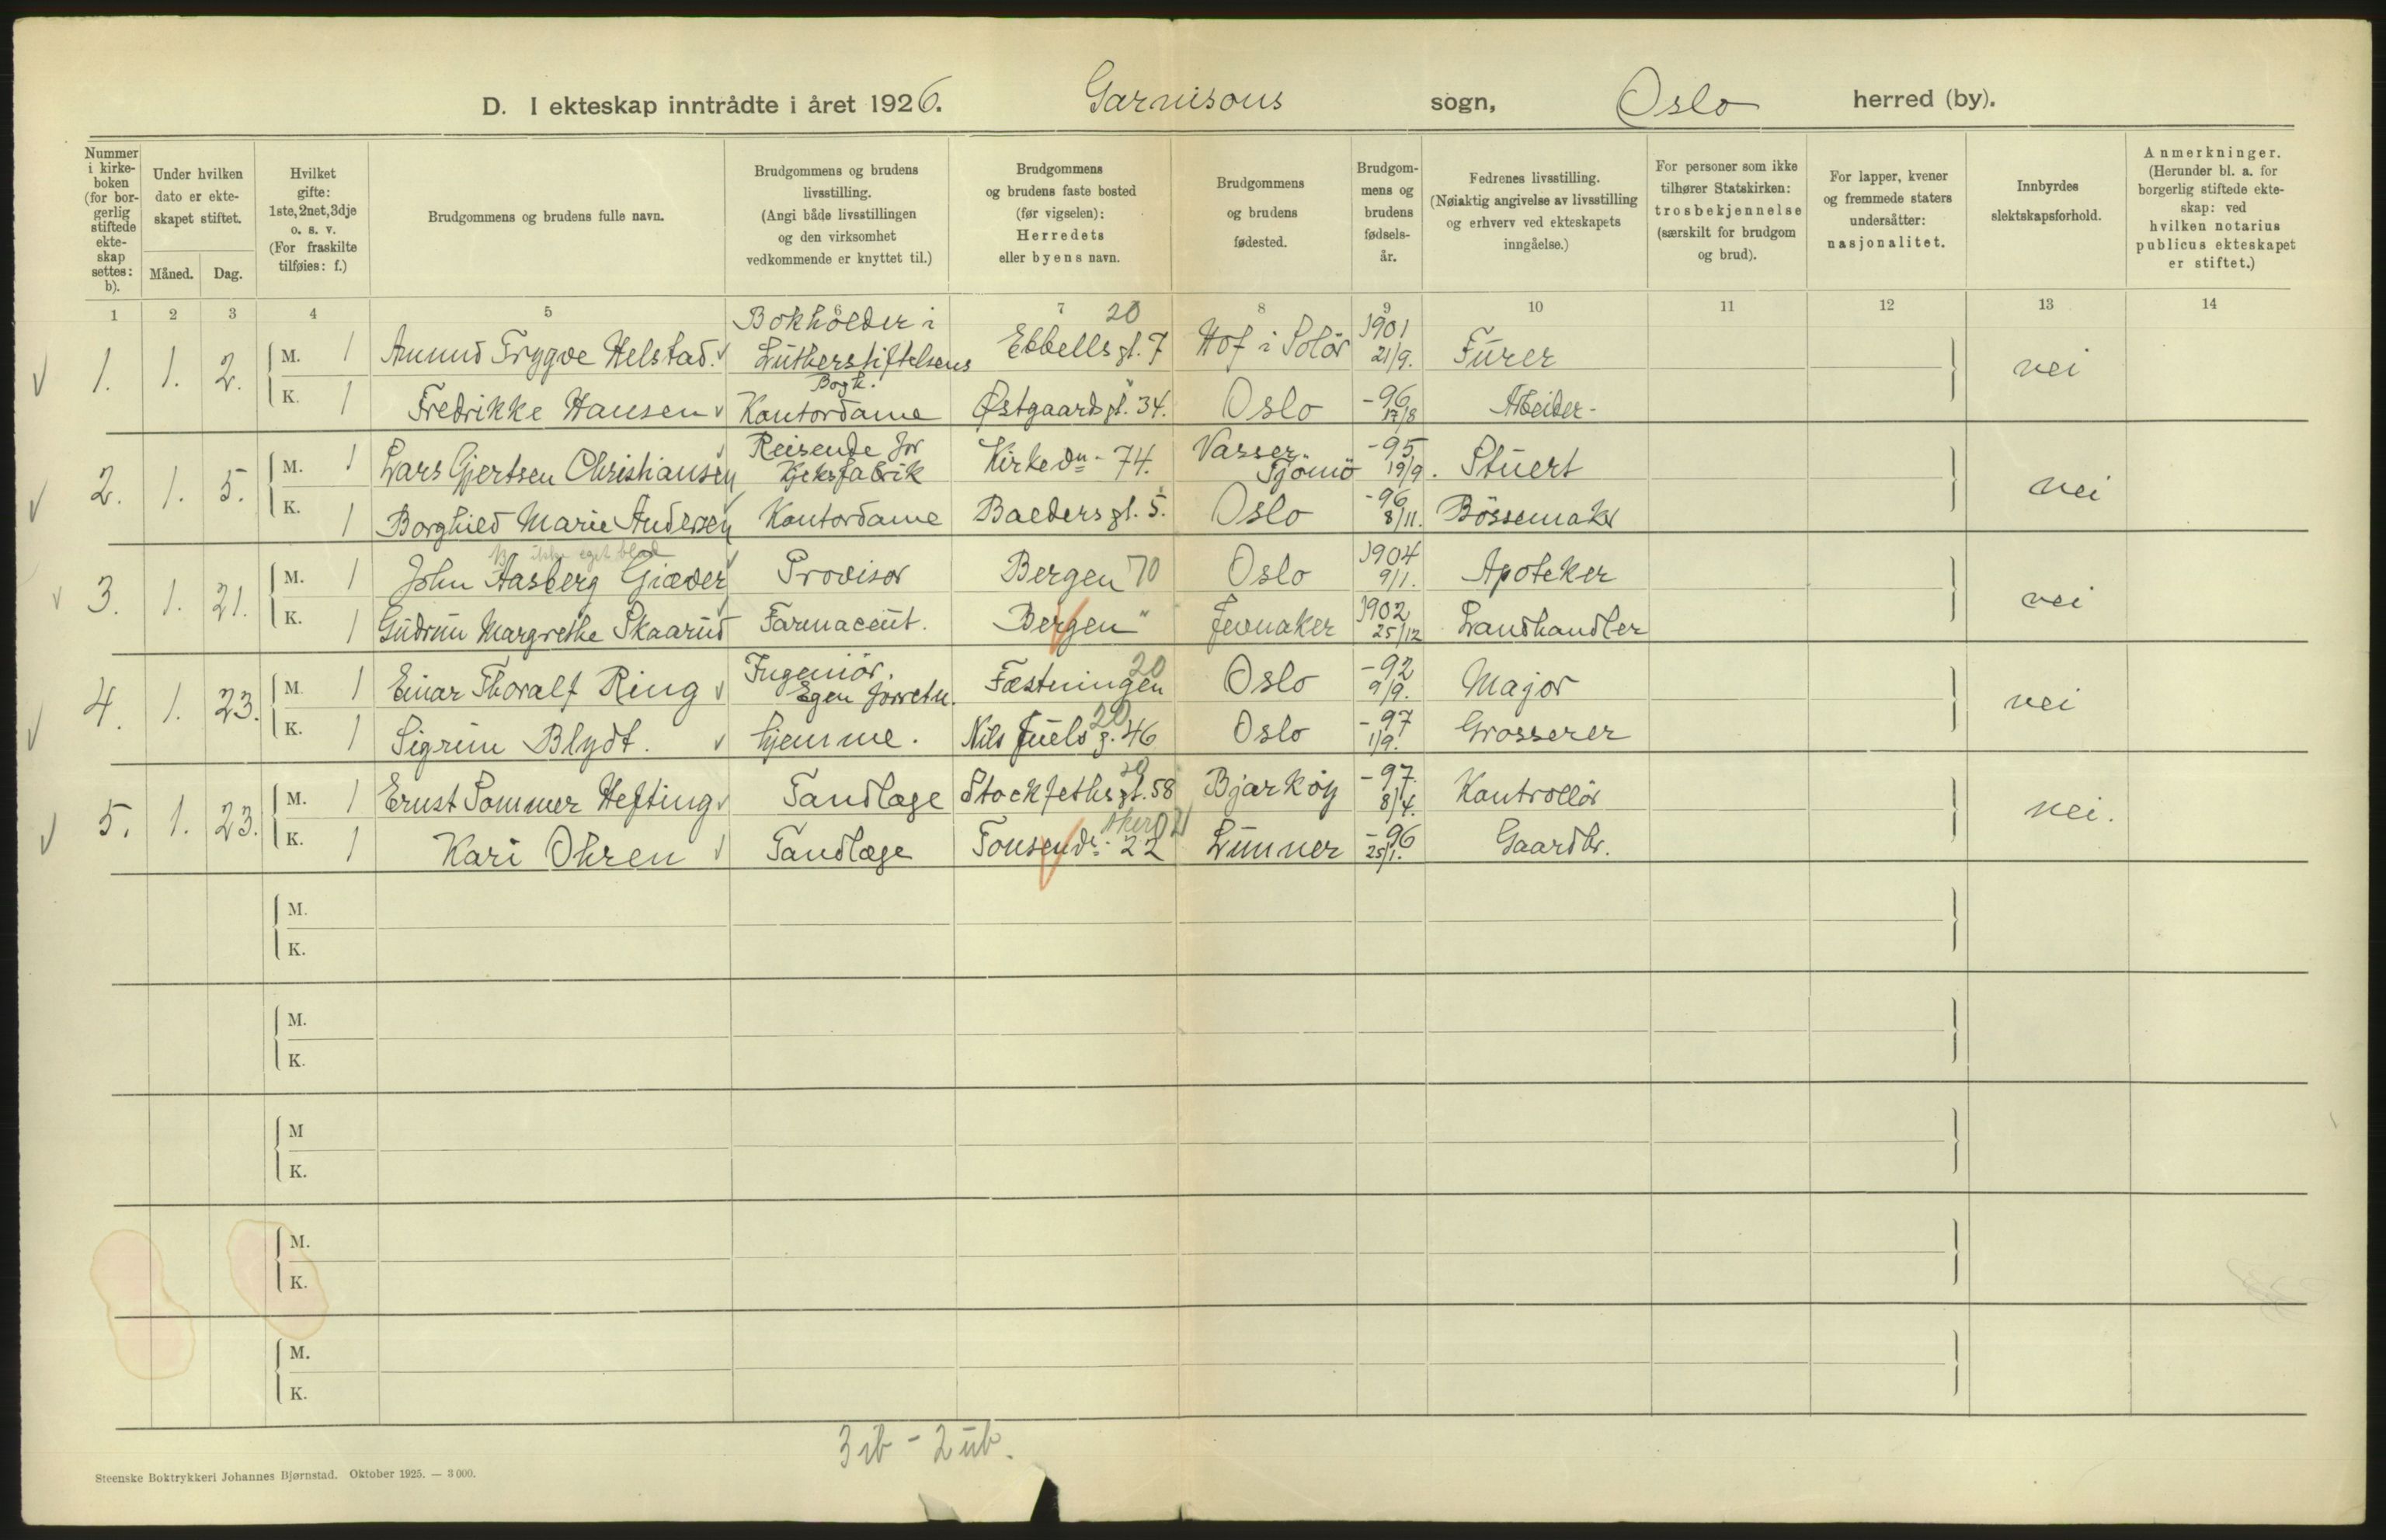 D. I ekteskap inntrådte i året 1926. Garnisons sogn, Oslo herred (by).
Nummer i kirke-boken (for bor-gerlig stiftede ekte-skap settes: b).
Under hvilken dato er ekte-skapet stiftet.
Måned. Dag.
Hvilket gifte: 1ste, 2net, 3dje o. s. v. (For fraskilte tilføies: f.)
Brudgommens og brudens fulle navn.
Brudgommens og brudens livsstilling. (Angi både livsstillingen og den virksomhet vedkommende er knyttet til.)
Brudgommens og brudens faste bosted (før vigselen): Herredets eller byens navn.
Brudgommens og brudens fødested.
Brudgom-mens og brudens fødsels-år.
Fedrenes livsstilling. (Nøiaktig angivelse av livsstilling og erhverv ved ekteskapets inngåelse.)
For personer som ikke tilhører Statskirken: trosbekjennelse (særskilt for brudgom og brud).
For lapper, kvener og fremmede staters undersåtter: nasjonalitet.
Innbyrdes slektskapsforhold.
Anmerkninger. (Herunder bl. a. for borgerlig stiftede ekte-skap: ved hvilken notarius publicus ekteskapet er stiftet.)
1 2 3 4 5 6 7 8 9 10 11 12 13 14
1. 1. 2. M. 1 Amund Trygve Helstad. Bokholder i Lutherstiftelsens Bogh. Ebbells gt. 7 20 Hof i Solör 1901 21/9. Furer nei
K. 1 Fredrikke Hansen Kontordame Østgaards gt. 34. Oslo -96 17/8 Arbeider-
2. 1. 5. M. 1 Lars Gjertsen Christiansen Reisende for Kjeksfabrik Kirkevn. 74. Vasser. Tjömö -95 19/9. Stuert nei
K. 1 Borghild Marie Andersen Kontordame Baeders gt. 5. Oslo -96 8/11. Bössemaker
ikke eget blad
3. 1. 21. M. 1 John Aasberg Giæver Provisor Bergen 70 Oslo 1904 9/1. Apoteker nei
K. 1 Gudrun Margrethe Skaarud Farmaceut. Bergen " Jevnaker 1902 25/12 Landhandler
4. 1. 23. M. 1 Einar Thoralf Ring Ingeniör. Egen forretn. Fæstningen 20 Oslo -92 9/9. Major nei
K. 1 Sigrun Blydt. hjemme. Nils Juels g. 46 20 Oslo -97 1/9. Grosserer
5. 1. 23. M. 1 Ernst Sommer Hefting Tandlæge Stockfleths gt. 58 20 Bjarköy -97. 8/4. Kontrollör nei.
K. 1 Kari Ohren Tandlæge Tonsenvn. 22 Aker Lunner -96 25/1. Gaardbr.
M.
K.
M.
K.
M
K.
M.
K.
M.
K.
3 ib - 2 ub.
Steenske Boktrykkeri Johannes Bjørnstad. Oktober 1925. — 3 000.